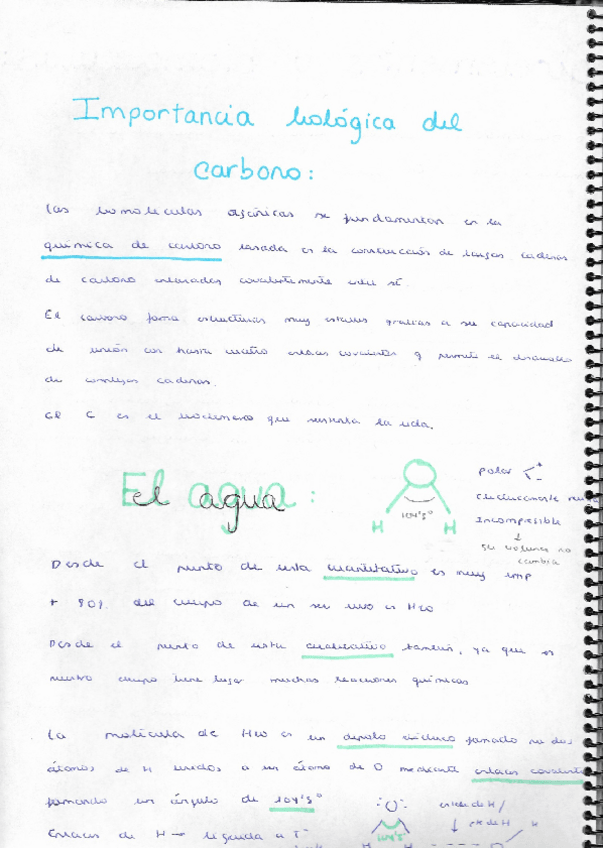 Importancia biológica del
carbono:
Las biomoléculas orgánicas se fundamentan en la
química de carbono basada en la construcción de largas cadenas
de carbono enlazados covalentemente entre sí.
El carbono forma estructuras muy estables gracias a su capacidad
de unión con hasta cuatro enlaces covalentes q permite el desarrollo
de complejas cadenas.
El C es el bioelemento que sustenta la vida.
El agua:
104'5°
H H
polar + -
Incompresible
↓
su volumen no
cambia
Desde el punto de vista cuantitativo es muy imp
+ 80% del cuerpo de un ser vivo es H2O
Desde el punto de vista cualitativo también, ya que en
nuestro cuerpo tiene lugar muchas reacciones químicas
La molécula de H2O es un dipolo eléctrico formado por dos
átomos de H unidos a un átomo de O mediante enlaces covalente
formando un ángulo de 104'5°
:O:
104'5°
H H
enlace de H /
↓ pte de H
Enlaces de H → líquida a Tª